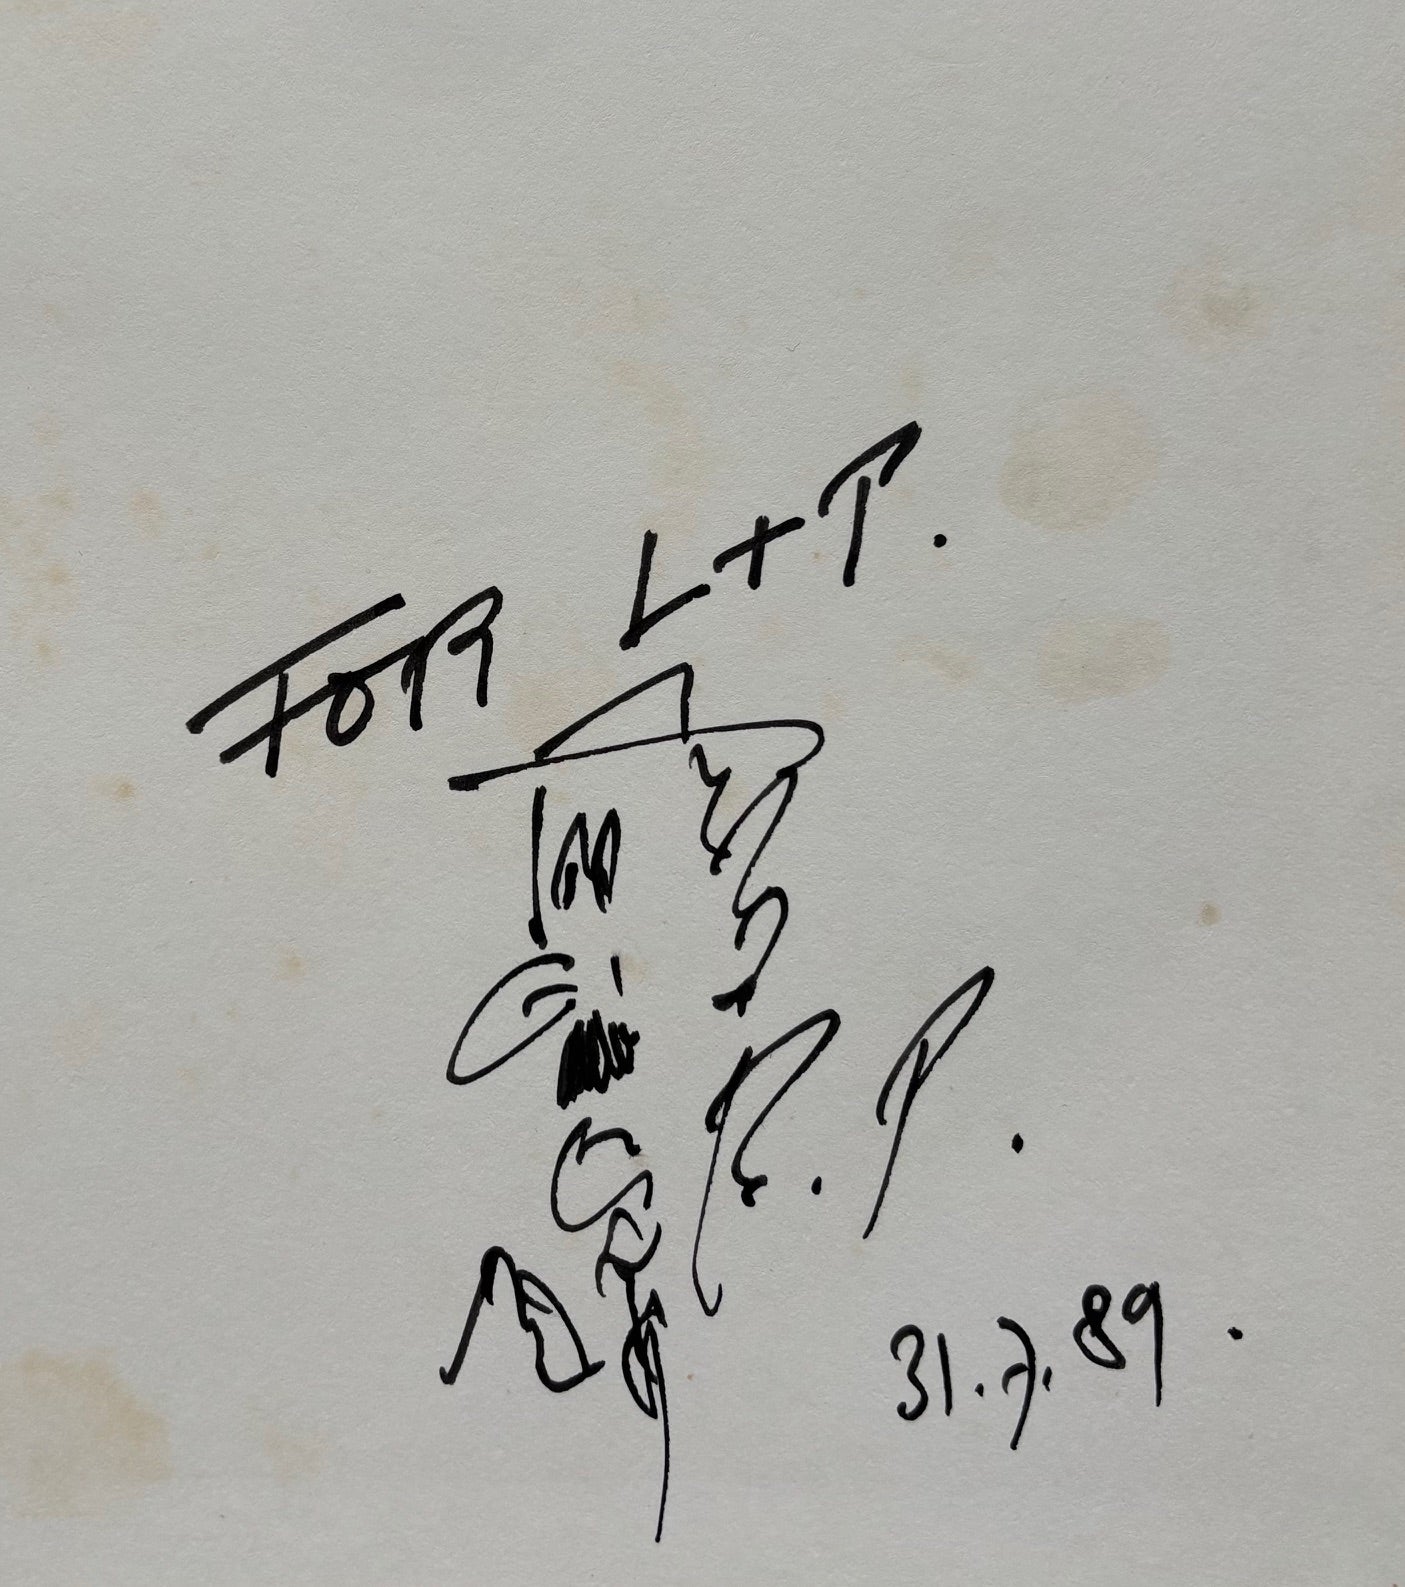 FOR L+T.
R.P.
31.7.89.